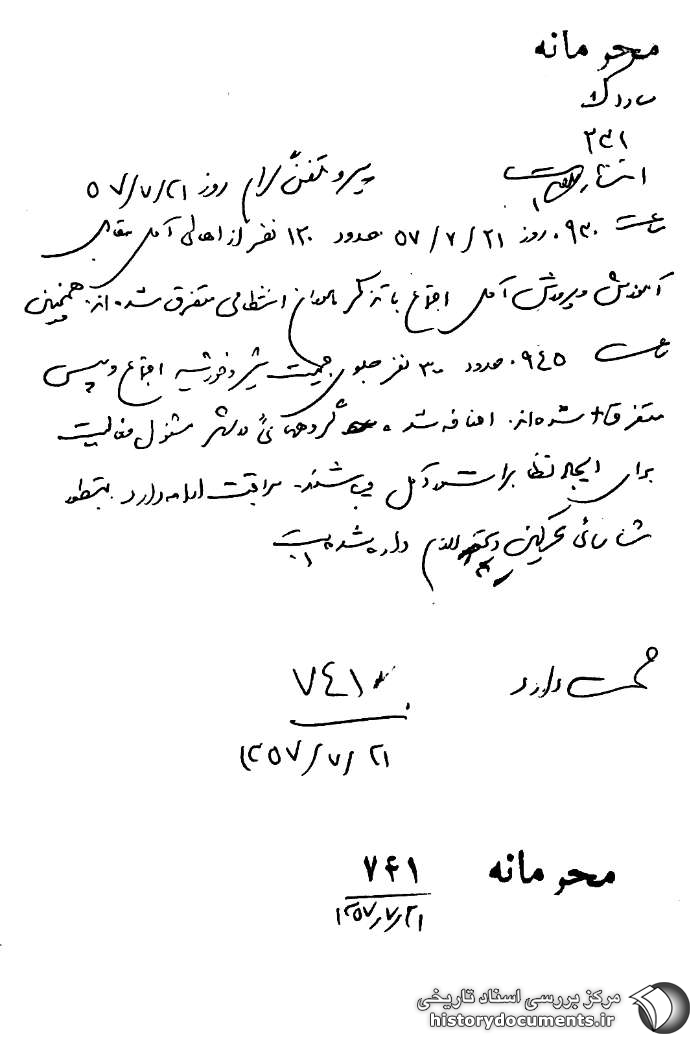 محرمانه
ساواک
۳۴۱
پیرو تلفنگرام روز ۵۷/۷/۲۱
ساعت ۰۹۳۰ روز ۵۷/۷/۲۱ حدود ۱۲۰ نفر از اهالی آمل مقابل
آموزش و پرورش آمل اجتماع با تذکر مامورین انتظامی متفرق شده‌اند. همچنین
ساعت ۰۹۴۵ حدود ۳۰۰ نفر جلوی جمعیت شیر و خورشید اجتماع و سپس
متفرق شده‌اند. اضافه شد گروههائی در شهر مشغول فعالیت
برای ایجاد تظاهرات در آمل میباشند. مراقبت ادامه دارد بمنظور
شناسائی محرکین دستور لازم داده شده است
صحت دارد
۷۴۱
۱۳۵۷/۷/۲۱
محرمانه
۷۴۱
۱۳۵۷/۷/۲۱
مرکز بررسی اسناد تاریخی
historydocuments.ir